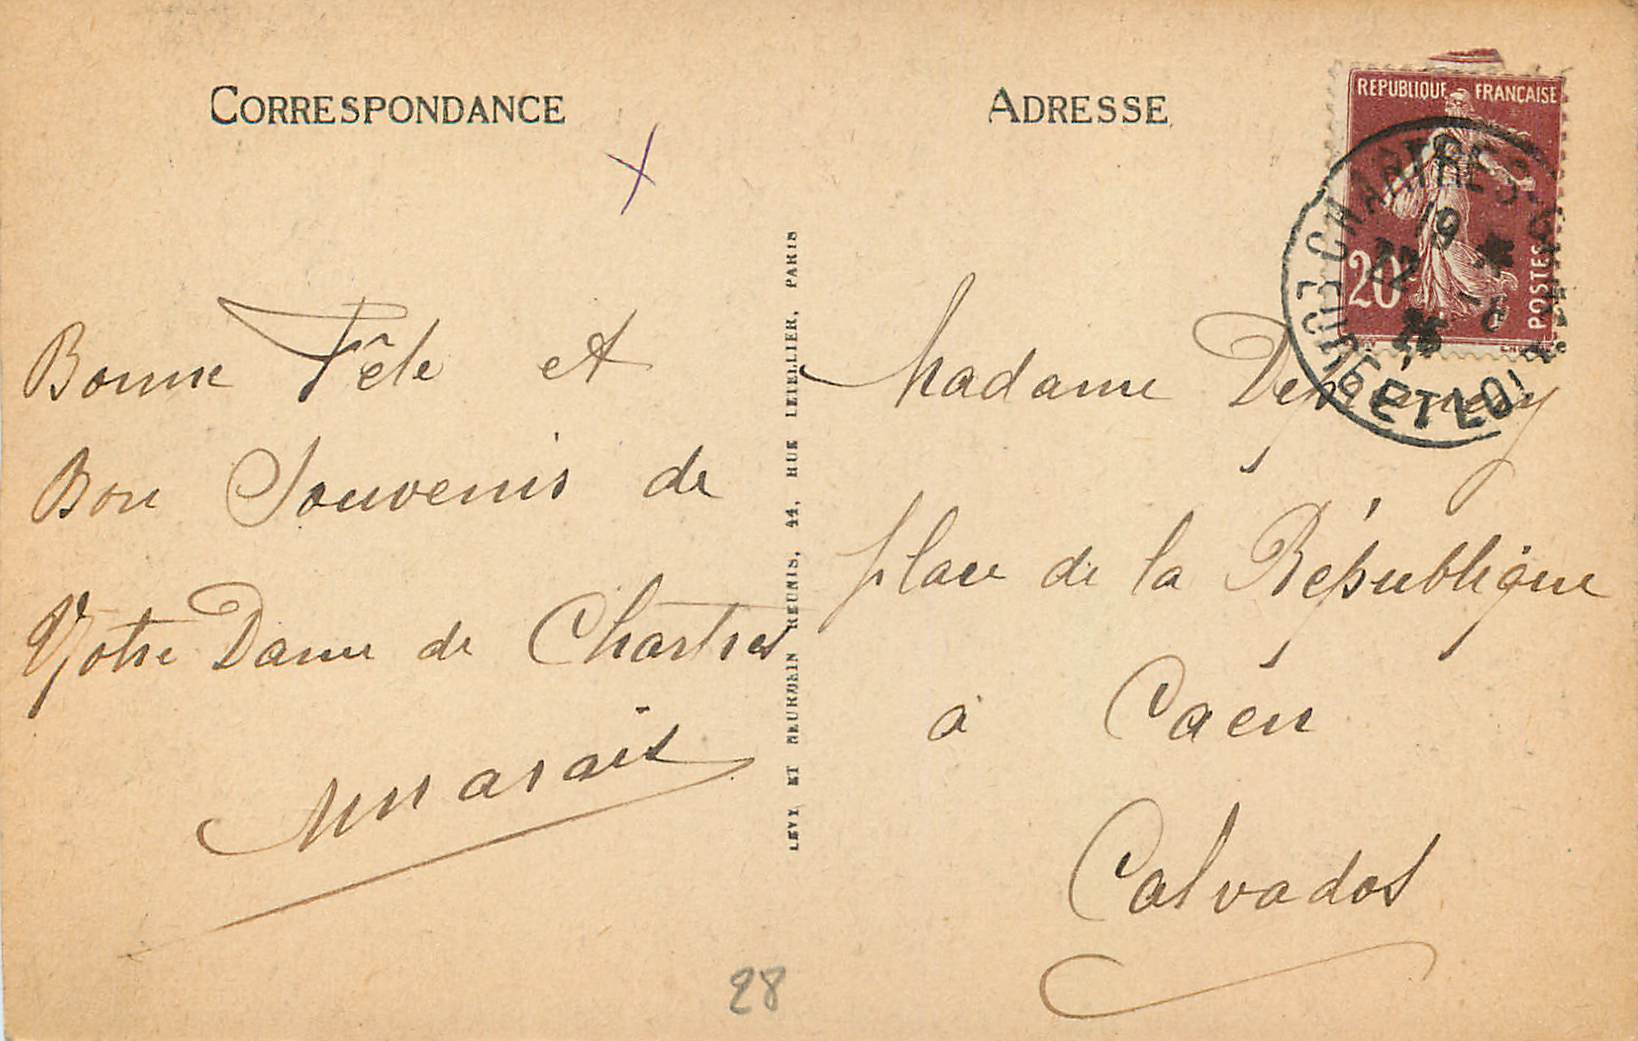 CORRESPONDANCE
Bonne Fête et
Bon Souvenir de
Notre Dame de Chartres
Marais
28
LEVY ET NEURDEIN REUNIS, 44, RUE LETELLIER, PARIS
ADRESSE
REPUBLIQUE FRANÇAISE
20
POSTES
CHARTRES
19
22
EURE ET LOIR
Madame
place de la République
à Caen
Calvados